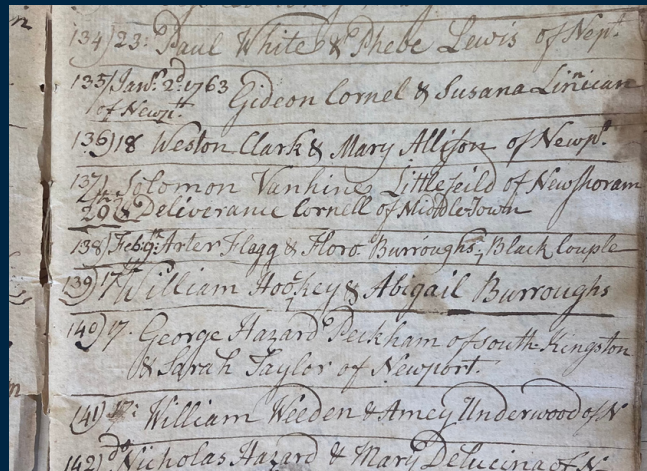 134) 23: Paul White & Phebe Lewis of Nept.
135) Janr. 2d. 1763 Gideon Cornel & Susana Linican
of Newpt.
136) 18 Weston Clark & Mary Allison of Newpt.
137) Solomon Vanhine Littlefeild of Newshoram
29 & Deliverance Cornell of Middletown
138) Feb 9th: Arter Flagg & Floro Burroughs, Black Couple
139) 17th William Hookey & Abigail Burroughs
140) 17. George Hazard Peckham of south Kingston
& Sarah Taylor of Newport.
141) 17: William Weeden & Amey Underwood of N
142) do Nicholas Hazard & Mary Delucina of N